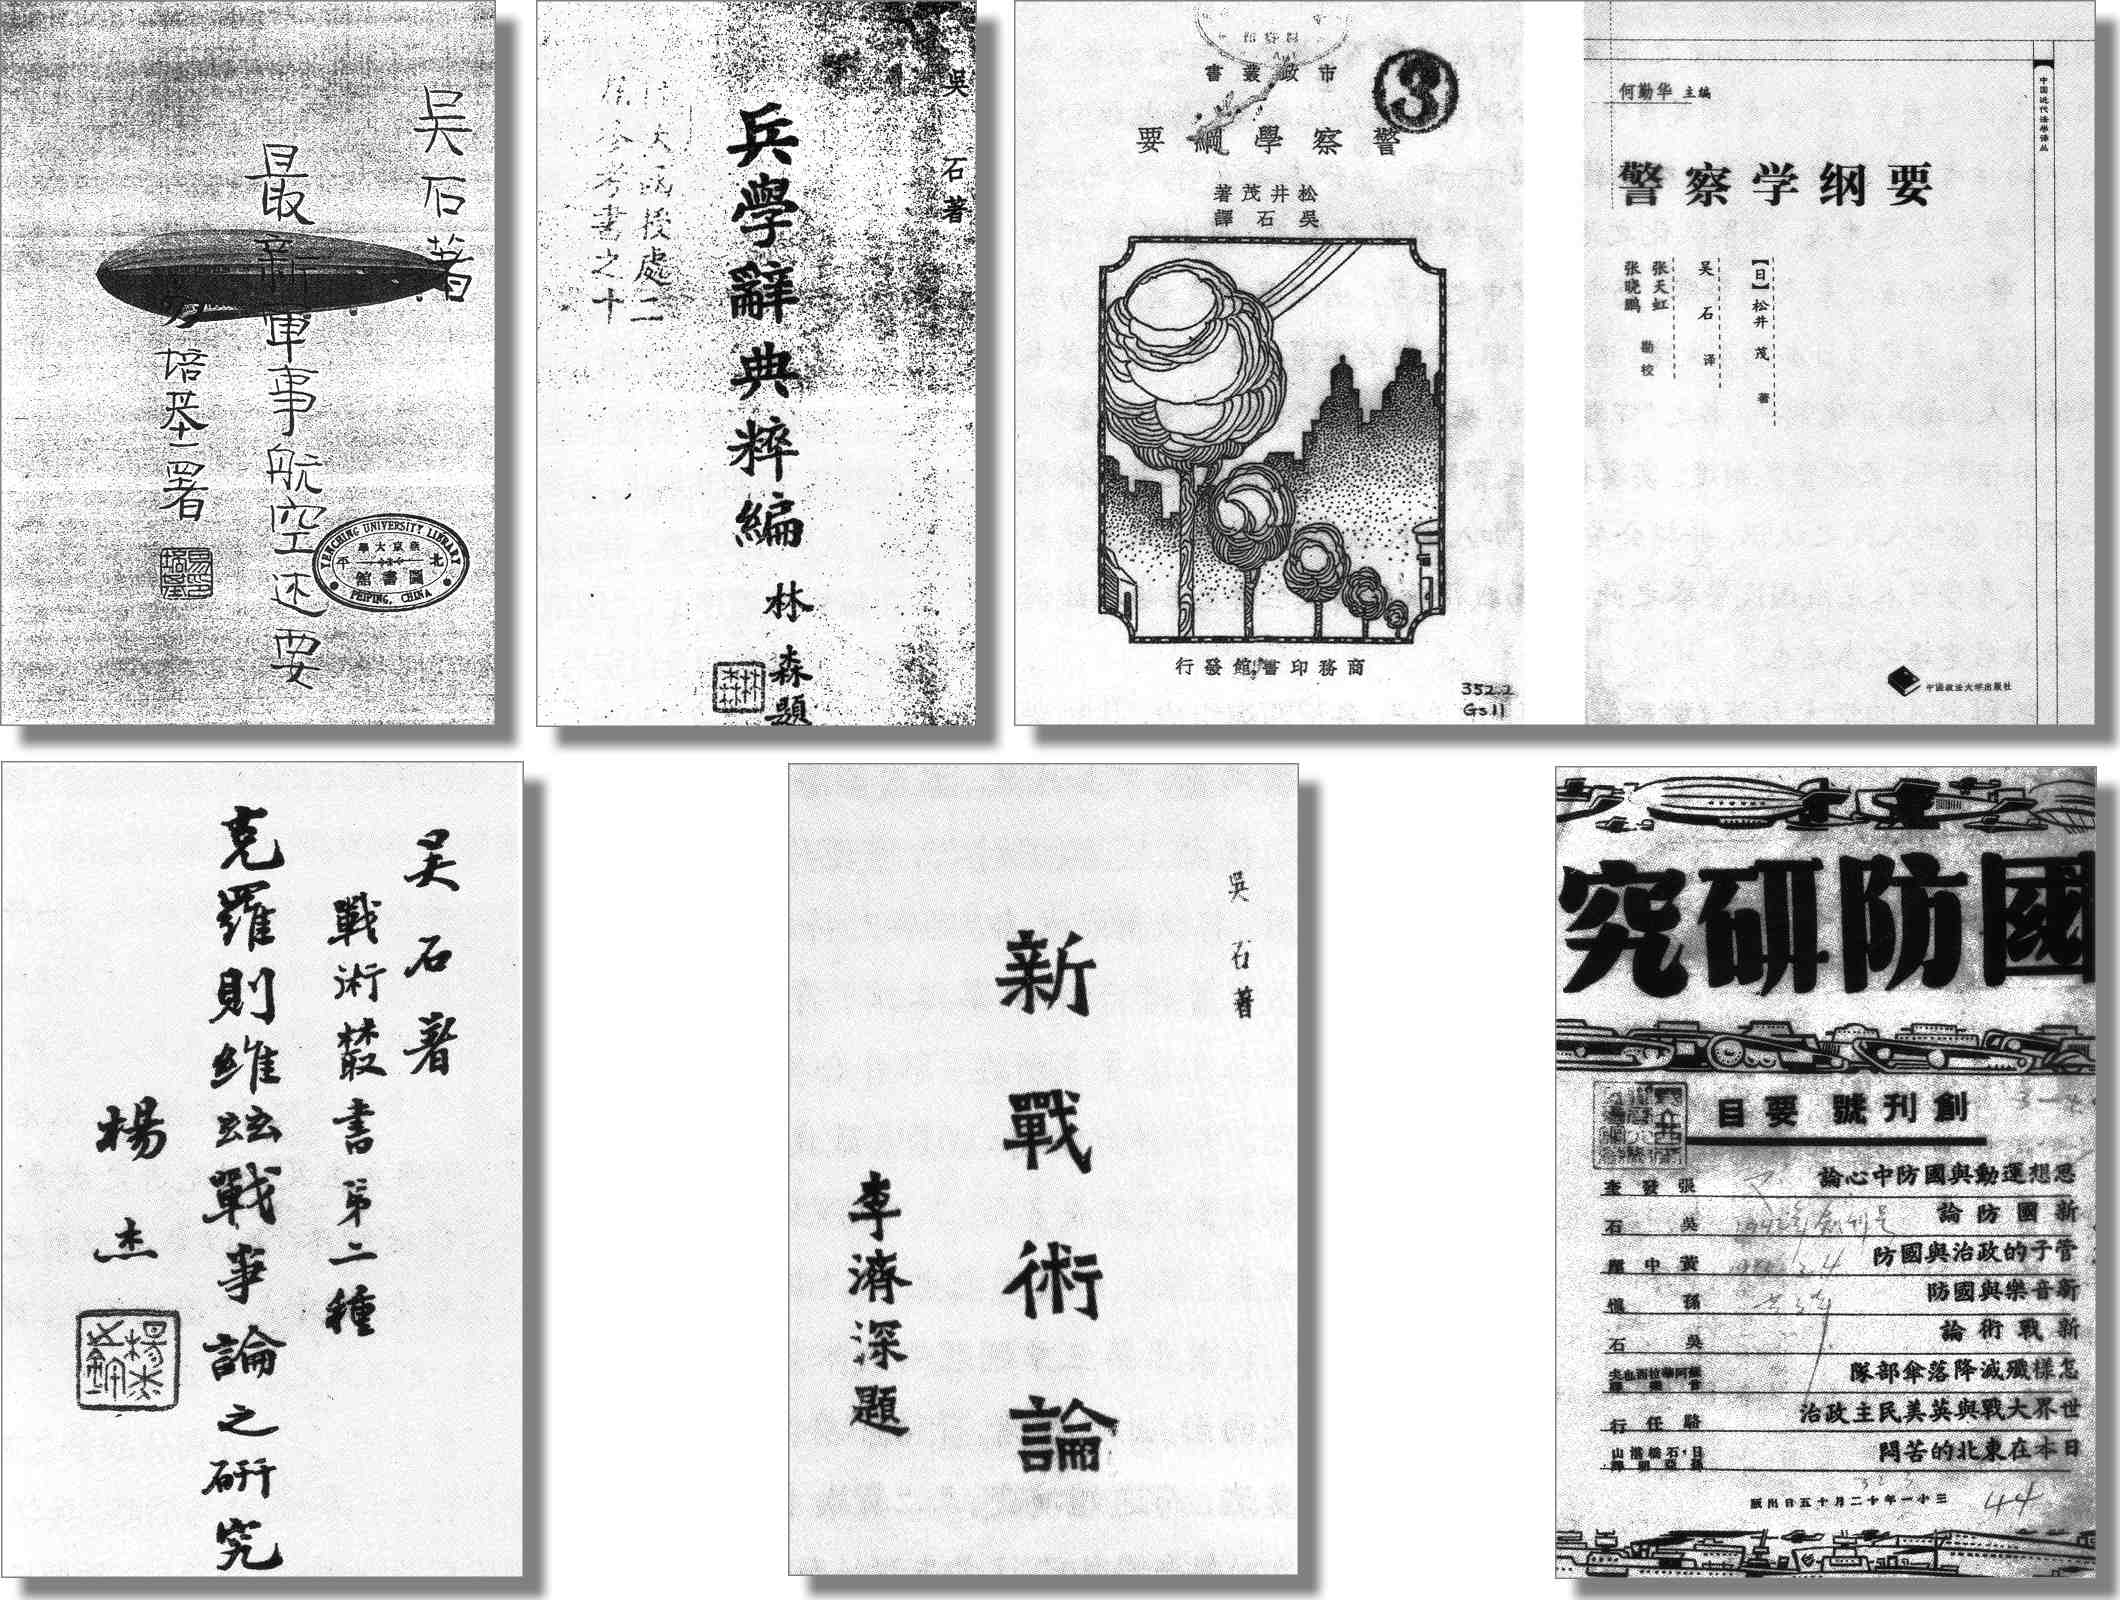 吴石著
最新軍事航空述要
易培基署
YENCHING UNIVERSITY LIBRARY
燕京大學
北平
圖書館
PEIPING, CHINA
吳石著
兵學辭典粹編
林森題
大函授處二
參考書之十
市政叢書
3
警察學綱要
松井茂著
吳石譯
商務印書館發行
352.2
Gs11
何勤华 主编
警察学纲要
【日】松井茂 著
吴石 译
张天虹
张晓鹏
勘校
中国近代法学译丛
中国政法大学出版社
吴石著
戰術叢書第二種
克羅則維玆戰事論之研究
楊杰
吳石著
新戰術論
李濟深題
國防研究
創刊號要目
思想運動與國防中心論 張發奎
新國防論 吳石
管子的政治與國防 黃中
新音樂與國防 孫慎
新戰術論 吳石
怎樣殲滅降落傘部隊
世界大戰與英美民主政治 駱任行
日本在東北的苦悶
三十一年十二月十五日出版
44